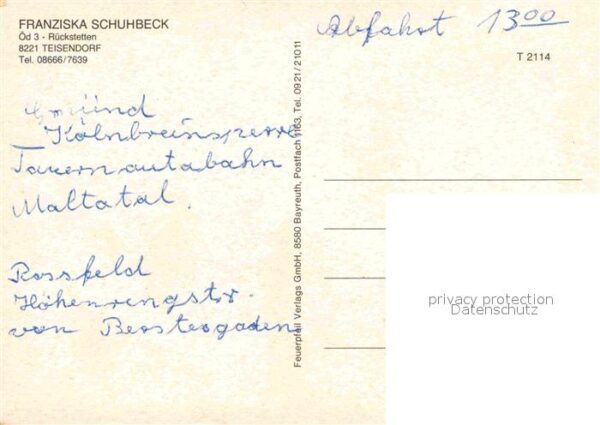 FRANZISKA SCHUHBECK
Öd 3 - Rückstetten
8221 TEISENDORF
Tel. 08666/7639
Abfahrt 13⁰⁰
T 2114
Gmünd
Kölnbreinsperre
Tauernautobahn
Maltatal.
Rossfeld
Höhenringstr.
von Berstesgaden
Feuerpfeil Verlags GmbH, 8580 Bayreuth, Postfach 1163, Tel. 09 21 / 2 10 11
privacy protection
Datenschutz